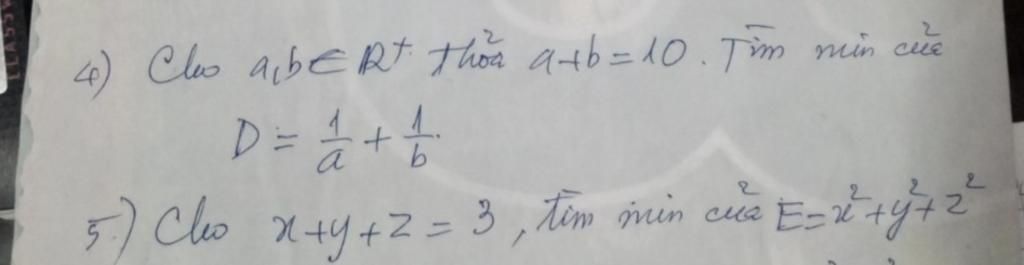 4) Cho a,b ∈ R⁺ thỏa a+b=10. Tìm min của
D = 1/a + 1/b.
5.) Cho x+y+z = 3, tìm min của E=x²+y²+z²